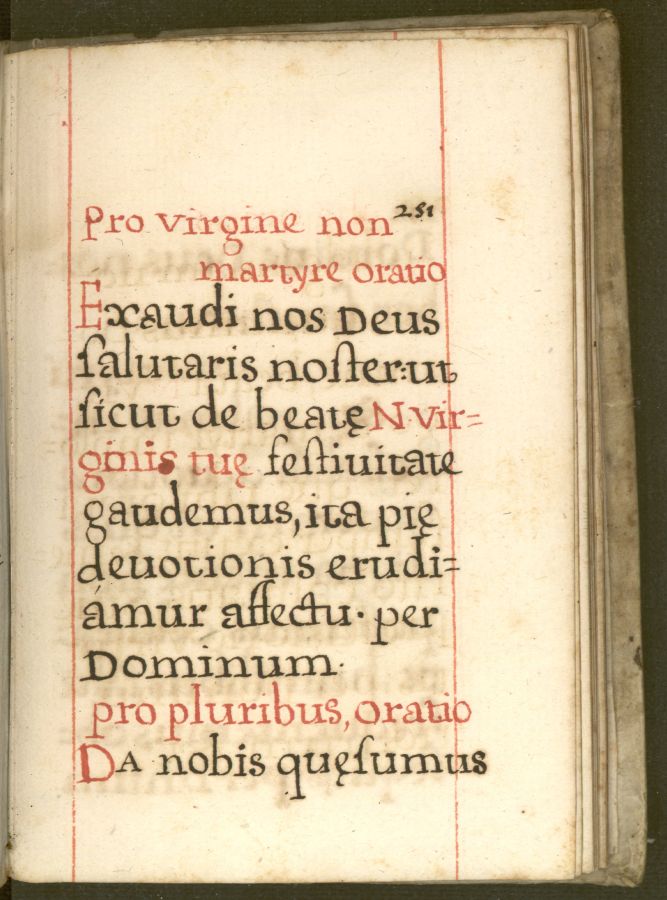 251
Pro virgine non
martyre oratio
Exaudi nos Deus
ſalutaris noſter: ut
ſicut de beatę N vir=
ginis tuę feſtiuitate
gaudemus, ita pię
deuotionis erudi=
ámur affectu· per
Dominum·
pro pluribus, oratio
DA nobis quęſumus